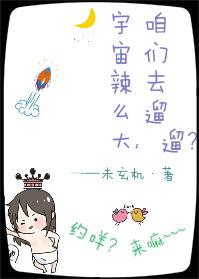 宇宙辣么大，
咱们去遛遛?
——未玄机·著
约咩? 来嘛~~~